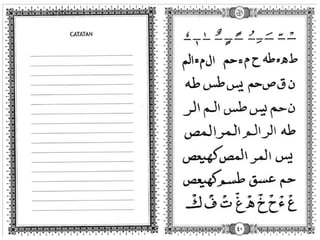 CATATAN
طه=طه ح م=حم ال م=الم
ن ق ص حم يس طس طه
ن حم يس طس الم الر
طه الر الم المر المص
يس المر المص كهيعص
حم عسق طسم كهيعص